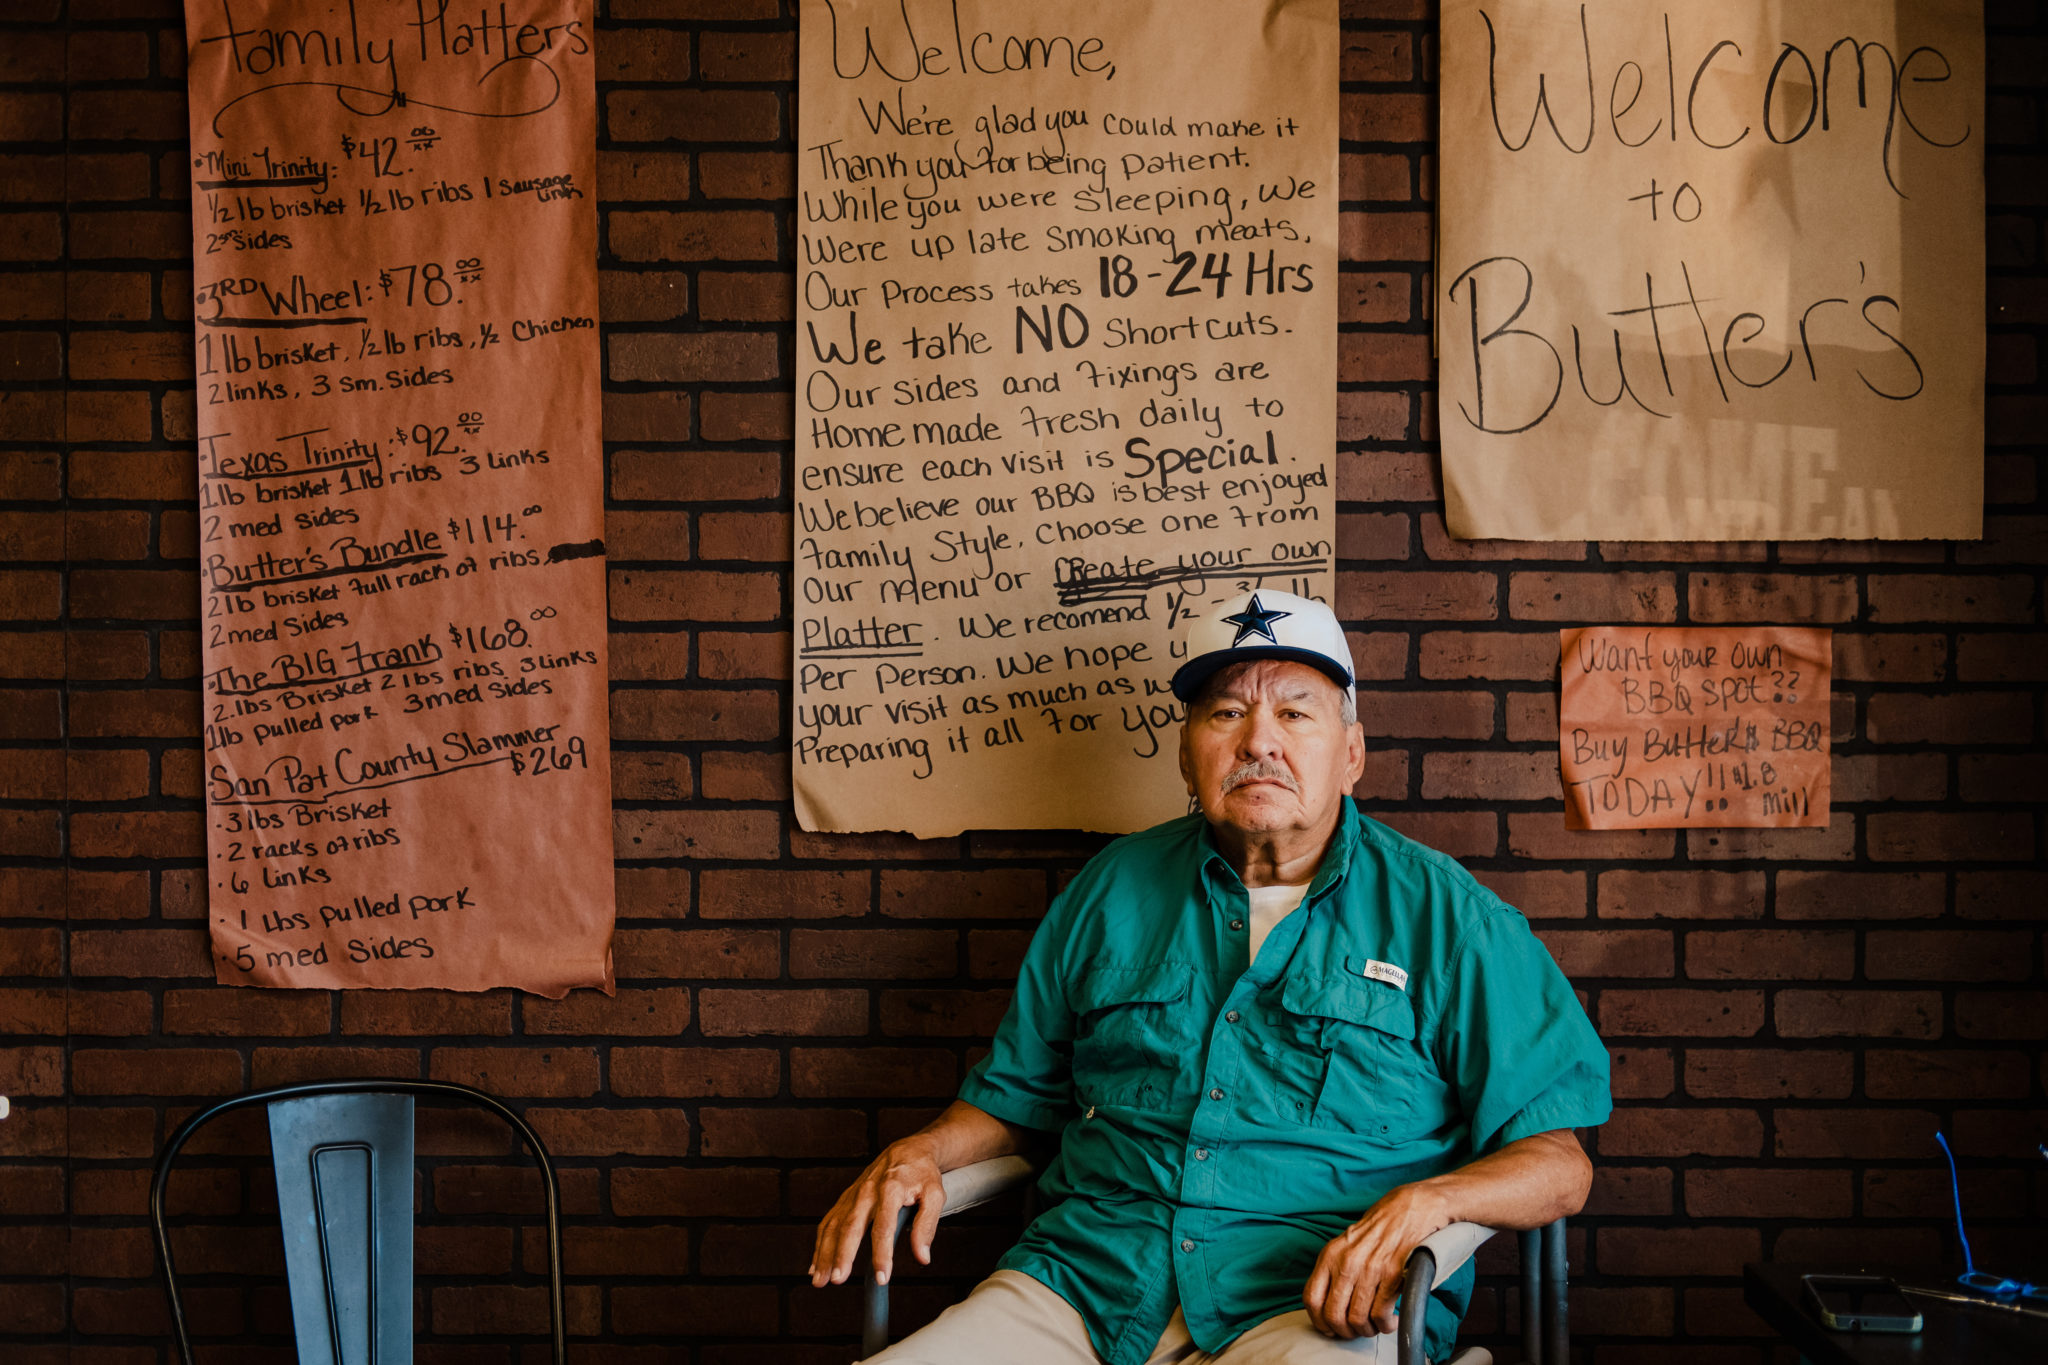 Family Platters
• Mini Trinity: $42.00/xx
1/2 lb brisket 1/2 lb ribs 1 sausage link
2 sm sides
• 3RD Wheel: $78.00/xx
1 lb brisket, 1/2 lb ribs, 1/2 Chicken
2 links, 3 sm. sides
• Texas Trinity: $92.00/xx
1lb brisket 1lb ribs 3 links
2 med sides
• Butter's Bundle $114.00
2lb brisket full rack of ribs
2 med sides
• The BIG Frank $168.00
2.lbs Brisket 2 lbs ribs 3 links
1lb pulled pork 3 med sides
San Pat County Slammer
$269
• 3 lbs Brisket
• 2 racks of ribs
• 6 Links
• 1 Lbs pulled pork
• 5 med sides
Welcome,
We're glad you could make it
Thank you for being patient.
While you were sleeping, we
were up late smoking meats.
Our process takes 18-24 Hrs
We take NO Shortcuts.
Our sides and fixings are
Homemade fresh daily to
ensure each visit is Special.
We believe our BBQ is best enjoyed
family style. Choose one from
our menu or Create your own
Platter. We recomend 1/2 - lb
Per person. We hope
your visit as much as
Preparing it all for you
Welcome
to
Butter's
Want your own
BBQ spot??
Buy Butter's BBQ
TODAY!! $1.8
mill
MAGELLAN